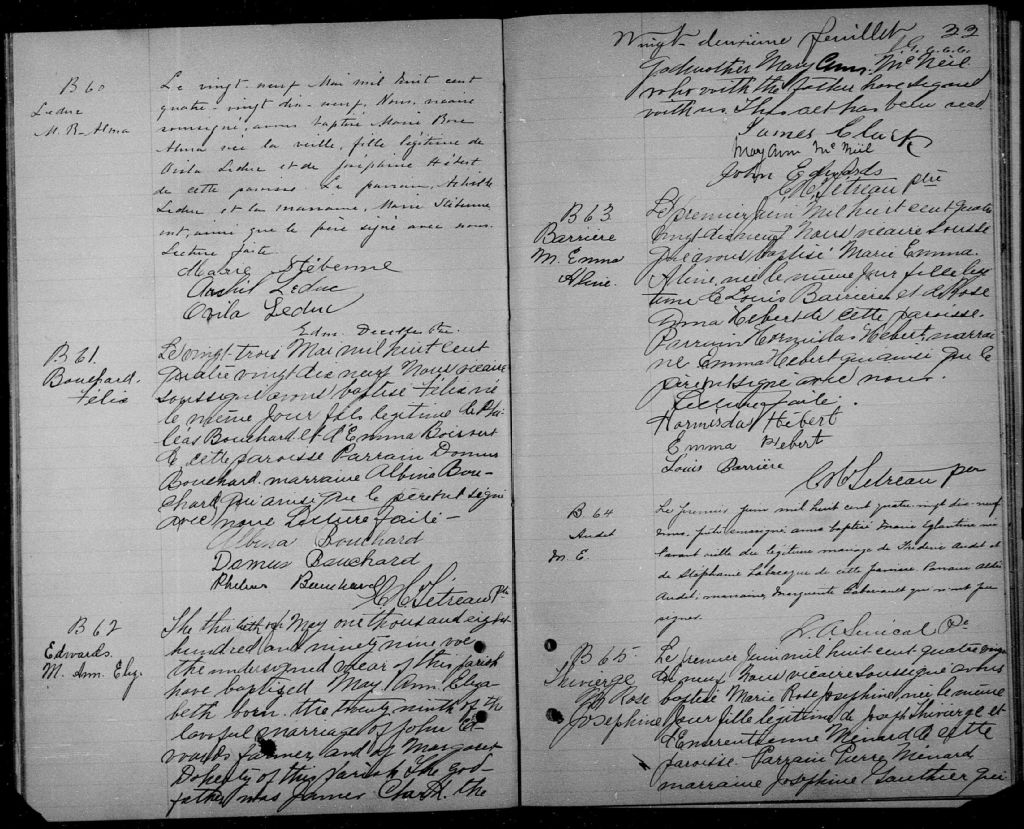 B 60
Leduc
M. R. Alma
Le vingt-neuf Mai mil huit cent
quatre-vingt dix-neuf, Nous, vicaire
soussigné, avons baptisé Marie Rose
Alma née la veille, fille légitime de
Ovila Leduc et de Joséphine Hébert
de cette paroisse. Le parrain,
Leduc et la marraine, Marie Hébenne
ont, ainsi que le père signé avec nous.
Lecture faite.
Marie Stébenne
Leduc
Ovila Leduc
Edm. ptre.
B 61.
Bouchard.
Félix
Le vingt-trois Mai mil huit cent
quatre vingt dix neuf Nous vicaire
soussigné avons baptisé Félix né
le même jour fils légitime de Phi
léas Bouchard et d'Emma Boisvert
de cette paroisse Parrain Domus
Bouchard. marraine Albina Bou-
chard qui ainsi que le père ont signé
avec nous Lecture faite -
Albina Bouchard
Domus Bouchard
Phileas Bouchard
Létreau Ptr
B 62
Edwards.
M. Ann. Eliz.
The thirtieth of May one thousand eight
hundred and ninety nine we
the undersigned vicar of this parish
have baptized Mary Ann Eliza
beth born the twenty ninth of the
lawful marriage of John Ed-
wards farmer and of Margaret
Doherty of this parish The god-
father was James Clark. the
Vingt-deuxième feuillet 22
Godmother Mary Ann. McNeil
who with the father have signed
with us. This act has been read
James Clark
Mary Ann McNeil
John Edwards
Létreau ptre
B 63
Barrière
M. Emma
Aline.
Le premier Juin Mil huit cent quatre
vingt dix neuf Nous vicaire sousse
gné avons baptisé Marie Emma
Aline, née le même jour fille légi
time de Louis Barrière et de Rose
Anna Hebert de cette paroisse.
Parrain Hormisdas Hebert, marrai
ne Emma Hebert qui ainsi que le
père ont signé avec nous.
Lecture faite.
Hormisdas Hébert
Emma Hebert
Louis Barrière
Létreau ptr
B 64
Audet
M. E.
Le premier Juin mil huit cent quatre vingt dix-neuf
nous, prêtre soussigné avons baptisé Marie Eglantine née
l'avant veille du légitime mariage de Frédéric Audet et
de Stéphanie Labrecque de cette paroisse. Parrain
Audet, marraine, Marguerite qui n'ont pu
signer.
L. A. Sénécal Ptre
B 65.
Thivierge
M. Rose
Josephine
Le premier Juin mil huit cent quatre vingt
dix neuf. Nous vicaire soussigné avons
baptisé Marie Rose Josephine née le même
jour fille légitime de Joseph Thivierge et
d'Emerentienne Ménard de cette
paroisse. Parrain Pierre Ménard
marraine Josephine Gauthier qui